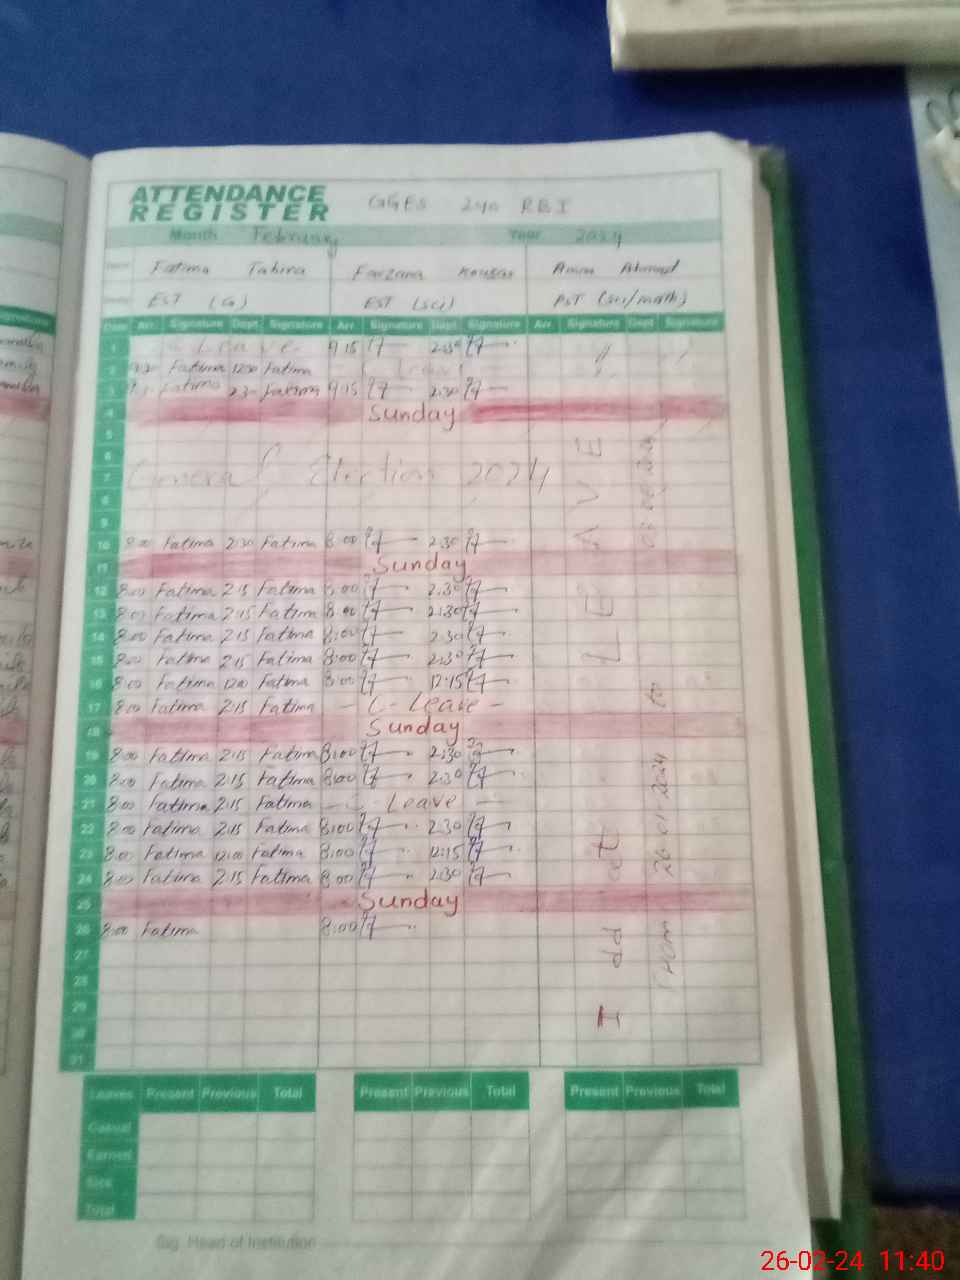 ATTENDANCE
REGISTER
GGES 240 RBI
Month February Year 2024
Fatima Tahira Farzana Kousar Ahmad
EST (G) EST (Sci) PST (Sci/math)
Date Arr. Signature Dept. Signature Arr. Signature Dept. Signature Arr. Signature Dept. Signature
1 Leave 9:15 2:30
2 Fatima 12:30 Fatima Leave
3 Fatima 2:30 Fatima 9:15 2:30
4 Sunday
5
6
7 General Election 2024
8
9
10 8:00 Fatima 2:30 Fatima 8:00 2:30
11 Sunday
12 8:00 Fatima 2:15 Fatima 8:00 2:30
13 8:00 Fatima 2:15 Fatima 8:00 2:30
14 8:00 Fatima 2:15 Fatima 8:00 2:30
15 8:00 Fatima 2:15 Fatima 8:00 2:30
16 8:00 Fatima 12:00 Fatima 8:00 12:15
17 8:00 Fatima 2:15 Fatima - C- Leave -
18 Sunday
19 8:00 Fatima 2:15 Fatima 8:00 2:30
20 8:00 Fatima 2:15 Fatima 8:00 2:30
21 8:00 Fatima 2:15 Fatima - C- Leave -
22 8:00 Fatima 2:15 Fatima 8:00 2:30
23 8:00 Fatima 12:00 Fatima 8:00 12:15
24 8:00 Fatima 2:15 Fatima 8:00 2:30
25 Sunday
26 8:00 Fatima 8:00
27
28
29
30
31
LEAVE
From 26-01-2024 to
Leaves Present Previous Total Present Previous Total Present Previous Total
Casual
Earned
Sick
Total
Sig. Head of Institution
26-02-24 11:40